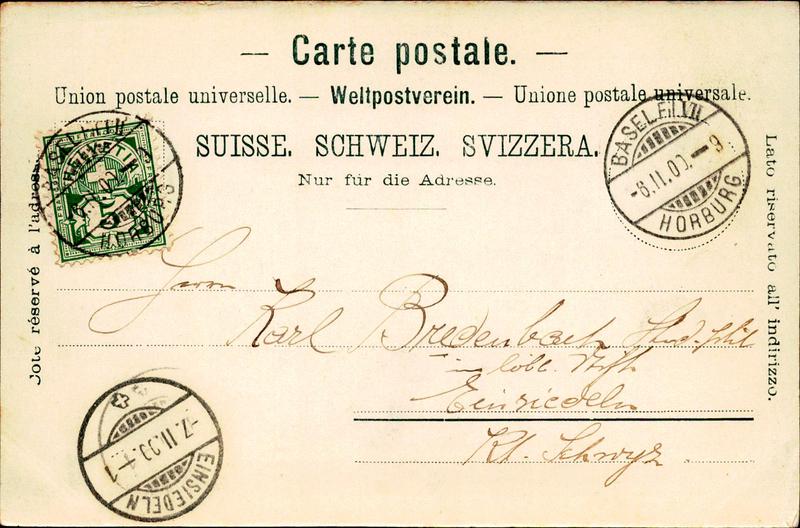 — Carte postale. —
Union postale universelle. — Weltpostverein. — Unione postale universale.
SUISSE. SCHWEIZ. SVIZZERA.
Nur für die Adresse.
Coté réservé à l'adresse
Lato riservato all' indirizzo.
HELVETIA
5
BASEL VII
-6.II.00.-9
HORBURG
Herrn
Karl Bredenbach Stud. phil
im löbl. Stift
Einsiedeln
Kt. Schwyz
-7.II.00.-1
EINSIEDELN